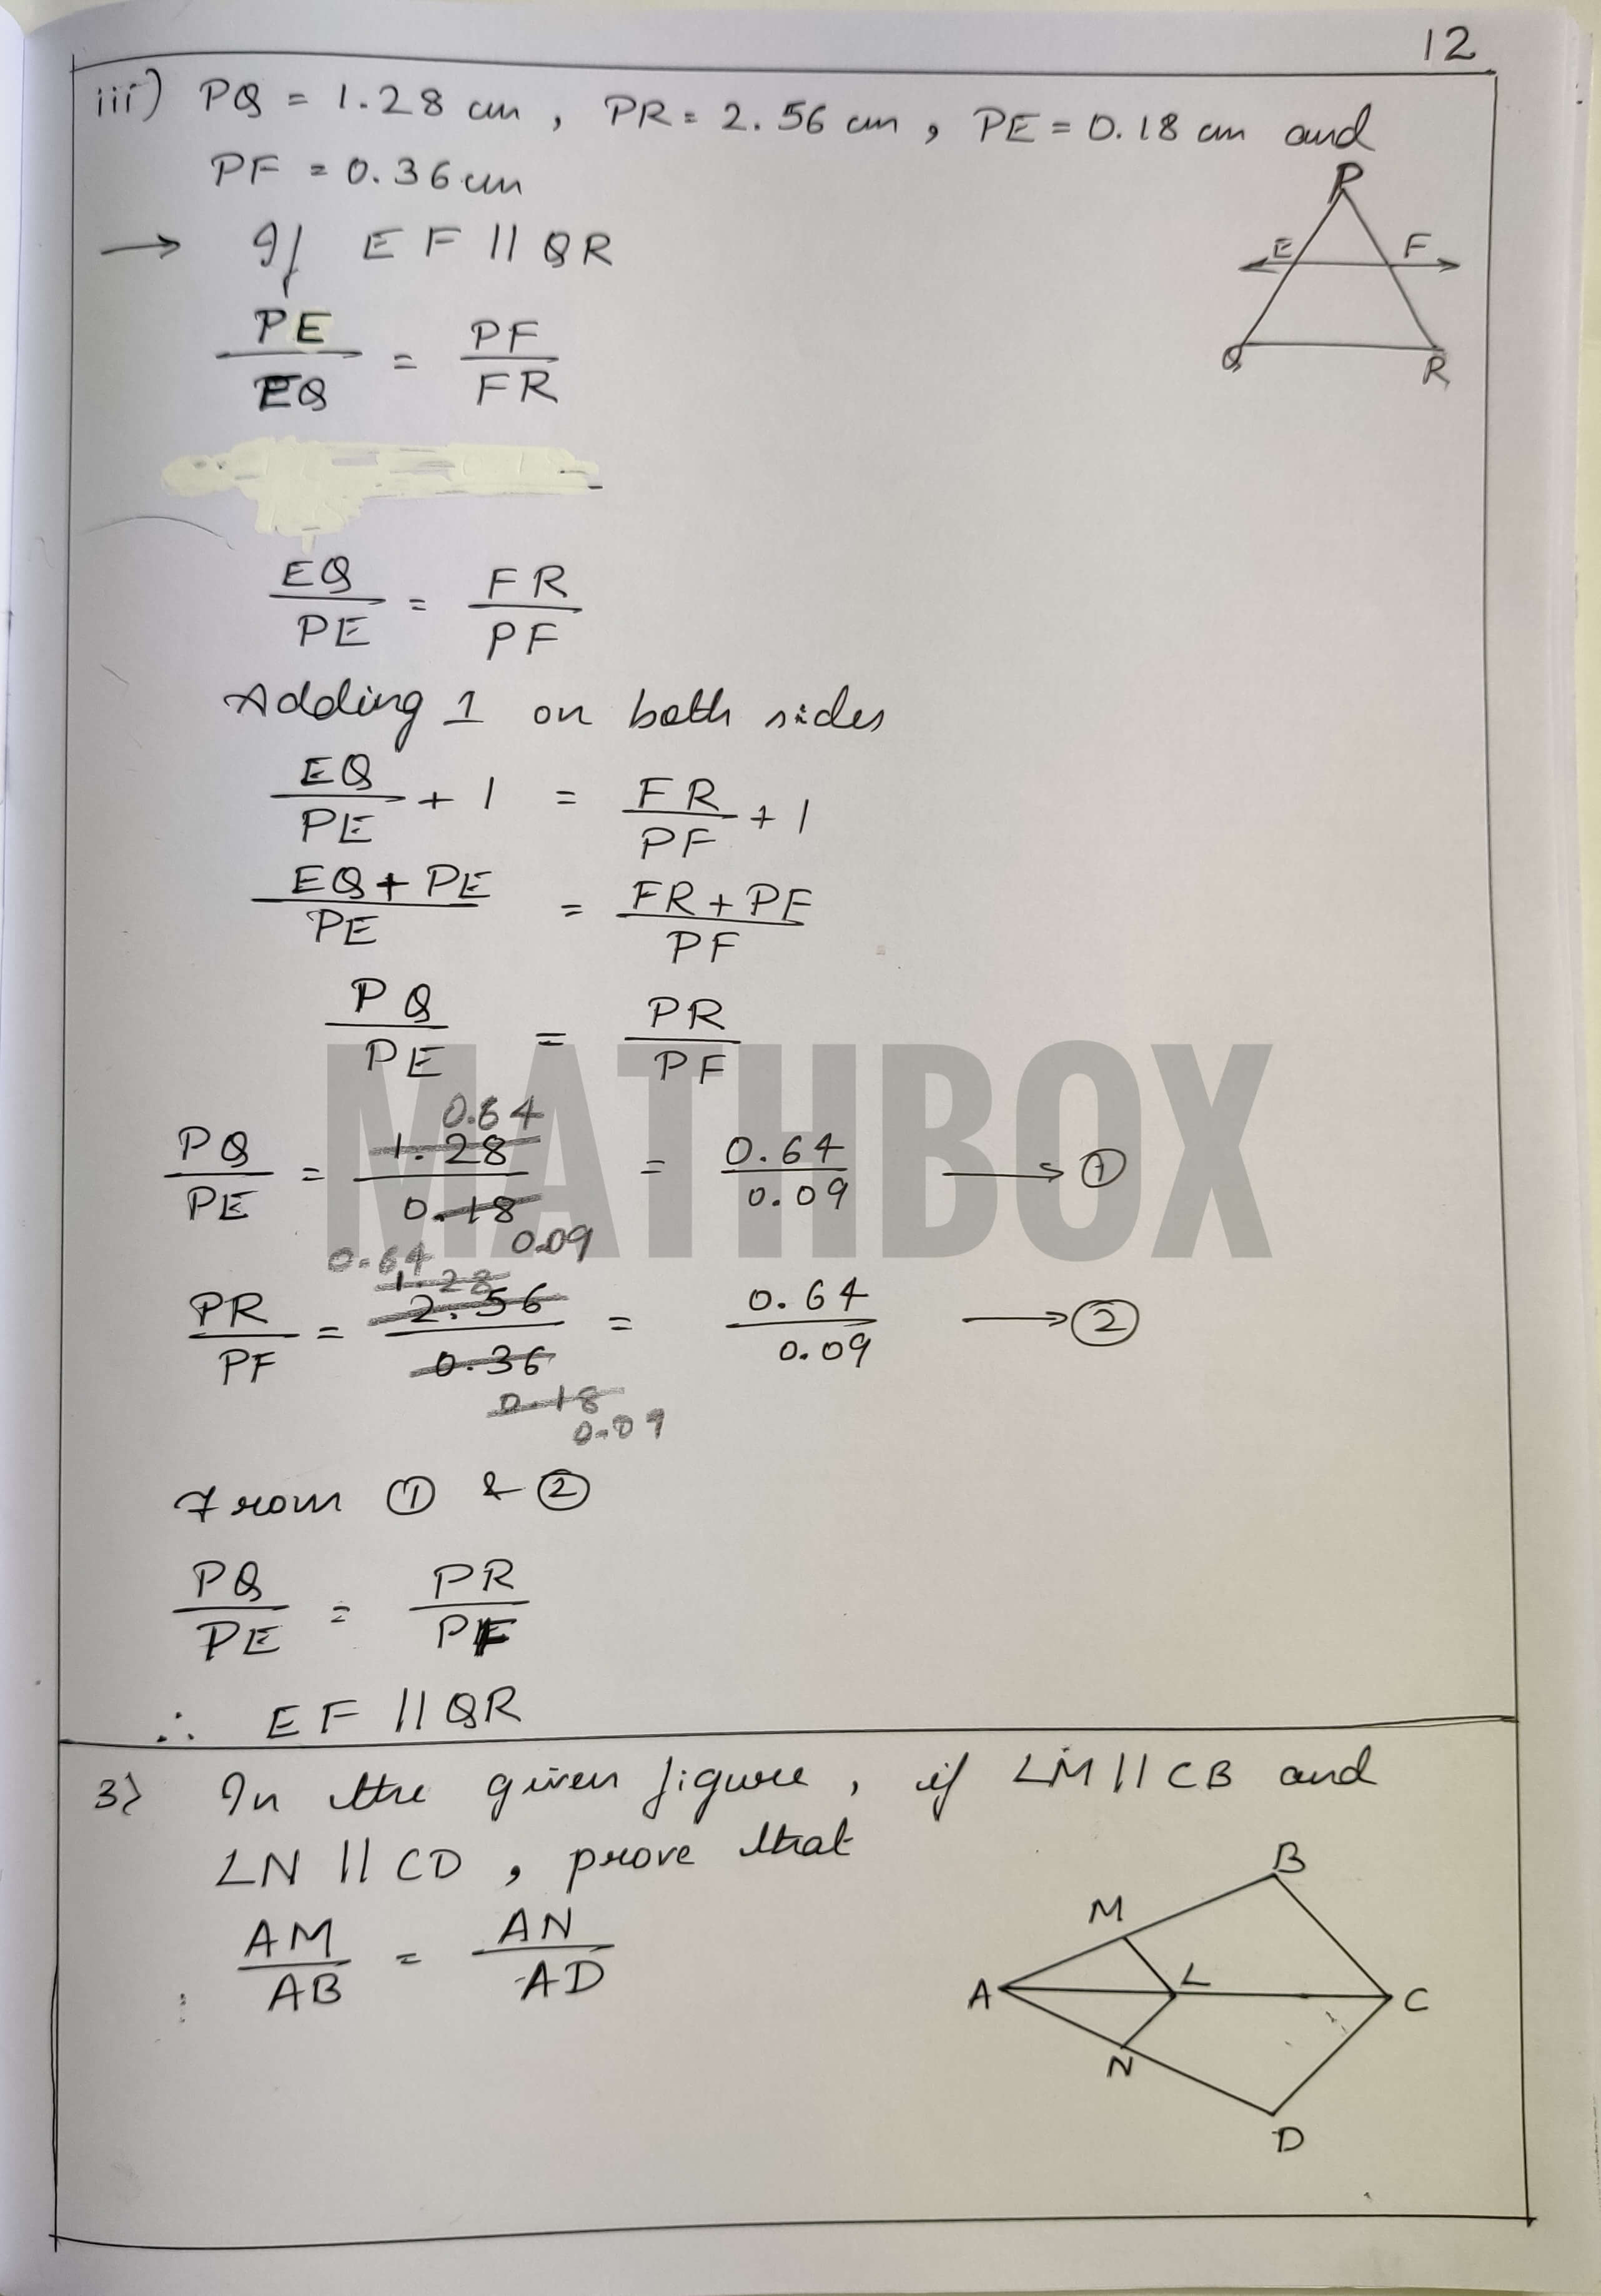 12
iii) PQ = 1.28 cm , PR = 2.56 cm , PE = 0.18 cm and
PF = 0.36 cm
→ If EF || QR
P
E F
Q R
PE/EQ = PF/FR
EQ/PE = FR/PF
Adding 1 on both sides
EQ/PE + 1 = FR/PF + 1
EQ + PE/PE = FR + PF/PF
PQ/PE = PR/PF
MATHBOX
0.64
PQ/PE = 1.28/0.18 = 0.64/0.09 → ①
0.09
0.64
1.28
PR/PF = 2.56/0.36 = 0.64/0.09 → ②
0.18
0.09
From ① & ②
PQ/PE = PR/PF
∴ EF || QR
3) In the given figure, if LM || CB and
LN || CD , prove that
AM/AB = AN/AD
B
M
A L C
N
D